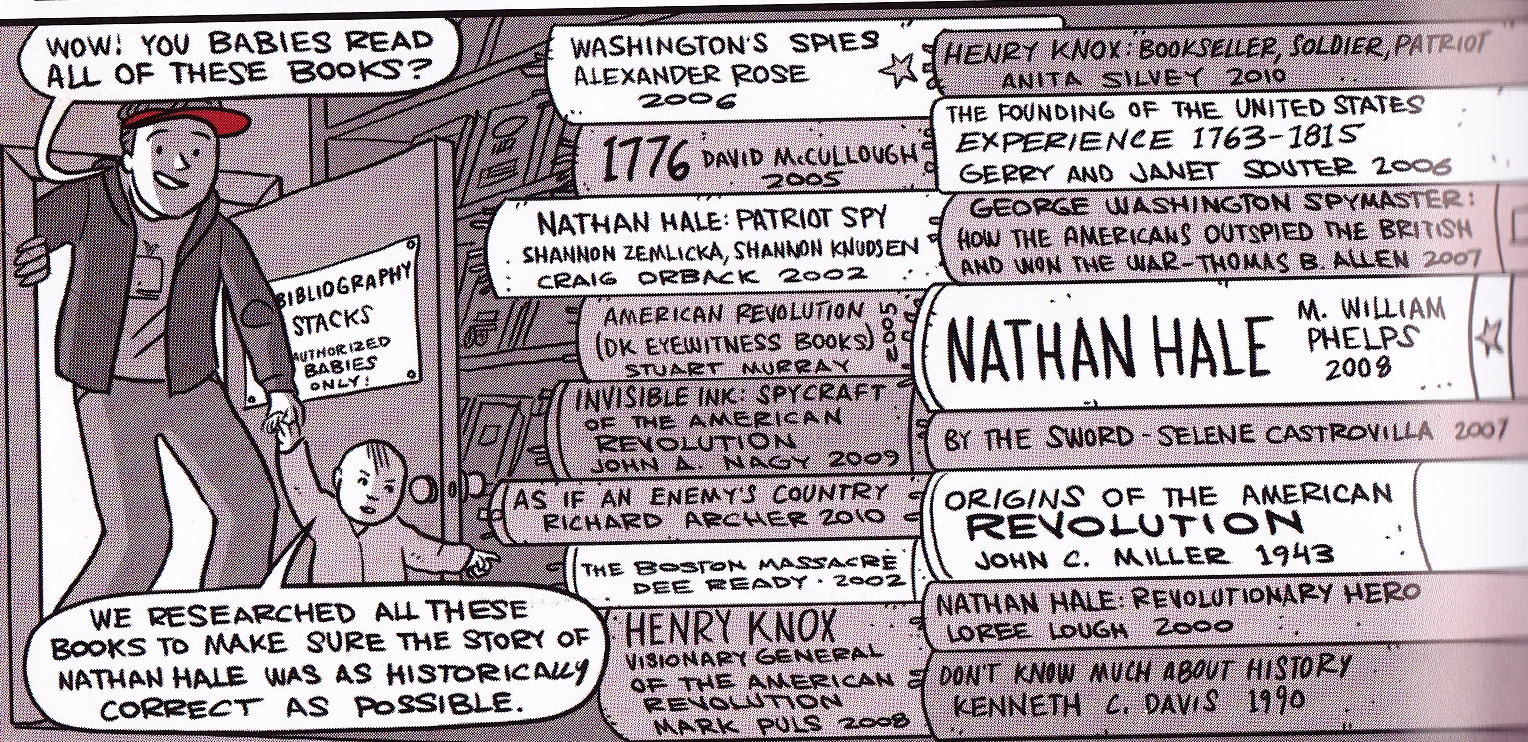 WOW! YOU BABIES READ
ALL OF THESE BOOKS?
BIBLIOGRAPHY
STACKS
AUTHORIZED
BABIES
ONLY!
WE RESEARCHED ALL THESE
BOOKS TO MAKE SURE THE STORY OF
NATHAN HALE WAS AS HISTORICALLY
CORRECT AS POSSIBLE.
WASHINGTON'S SPIES
ALEXANDER ROSE
2006
1776 DAVID McCULLOUGH
2005
NATHAN HALE: PATRIOT SPY
SHANNON ZEMLICKA, SHANNON KNUDSEN
CRAIG ORBACK 2002
AMERICAN REVOLUTION
(DK EYEWITNESS BOOKS)
STUART MURRAY
2005
INVISIBLE INK: SPYCRAFT
OF THE AMERICAN
REVOLUTION
JOHN A. NAGY 2009
AS IF AN ENEMY'S COUNTRY
RICHARD ARCHER 2010
THE BOSTON MASSACRE
DEE READY · 2002
HENRY KNOX
VISIONARY GENERAL
OF THE AMERICAN
REVOLUTION
MARK PULS 2008
HENRY KNOX: BOOKSELLER, SOLDIER, PATRIOT
ANITA SILVEY 2010
THE FOUNDING OF THE UNITED STATES
EXPERIENCE 1763-1815
GERRY AND JANET SOUTER 2006
GEORGE WASHINGTON SPYMASTER:
HOW THE AMERICANS OUTSPIED THE BRITISH
AND WON THE WAR-THOMAS B. ALLEN 2007
NATHAN HALE
M. WILLIAM
PHELPS
2008
BY THE SWORD - SELENE CASTROVILLA 2007
ORIGINS OF THE AMERICAN
REVOLUTION
JOHN C. MILLER 1943
NATHAN HALE: REVOLUTIONARY HERO
LOREE LOUGH 2000
DON'T KNOW MUCH ABOUT HISTORY
KENNETH C. DAVIS 1990